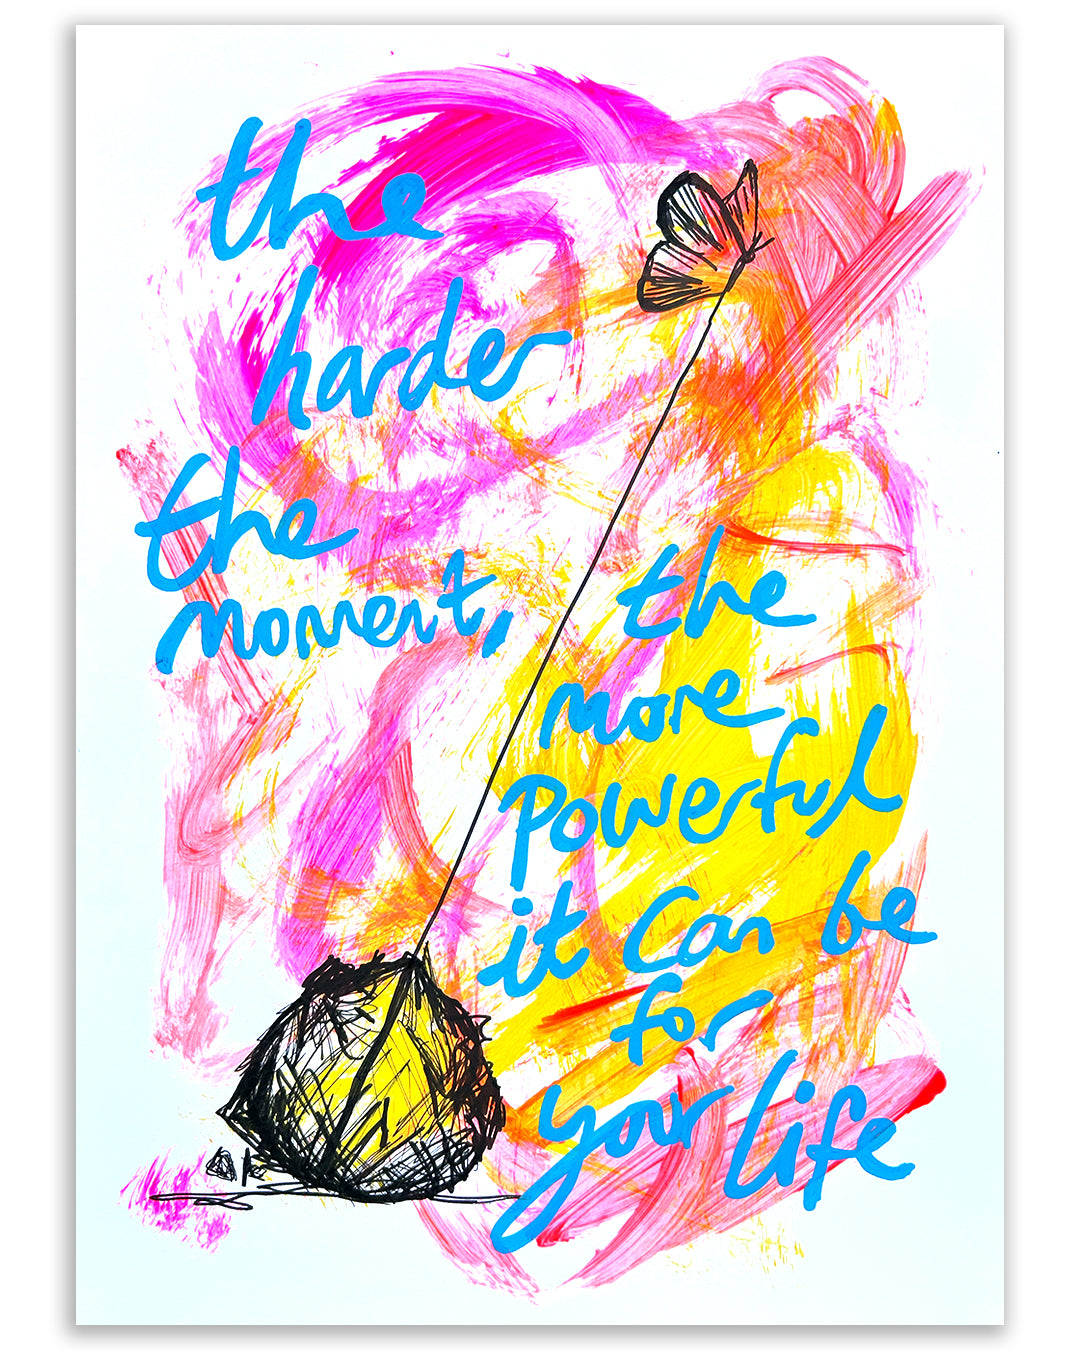 the
harder
the
moment,
the
more
Powerful
it can be
for
your life